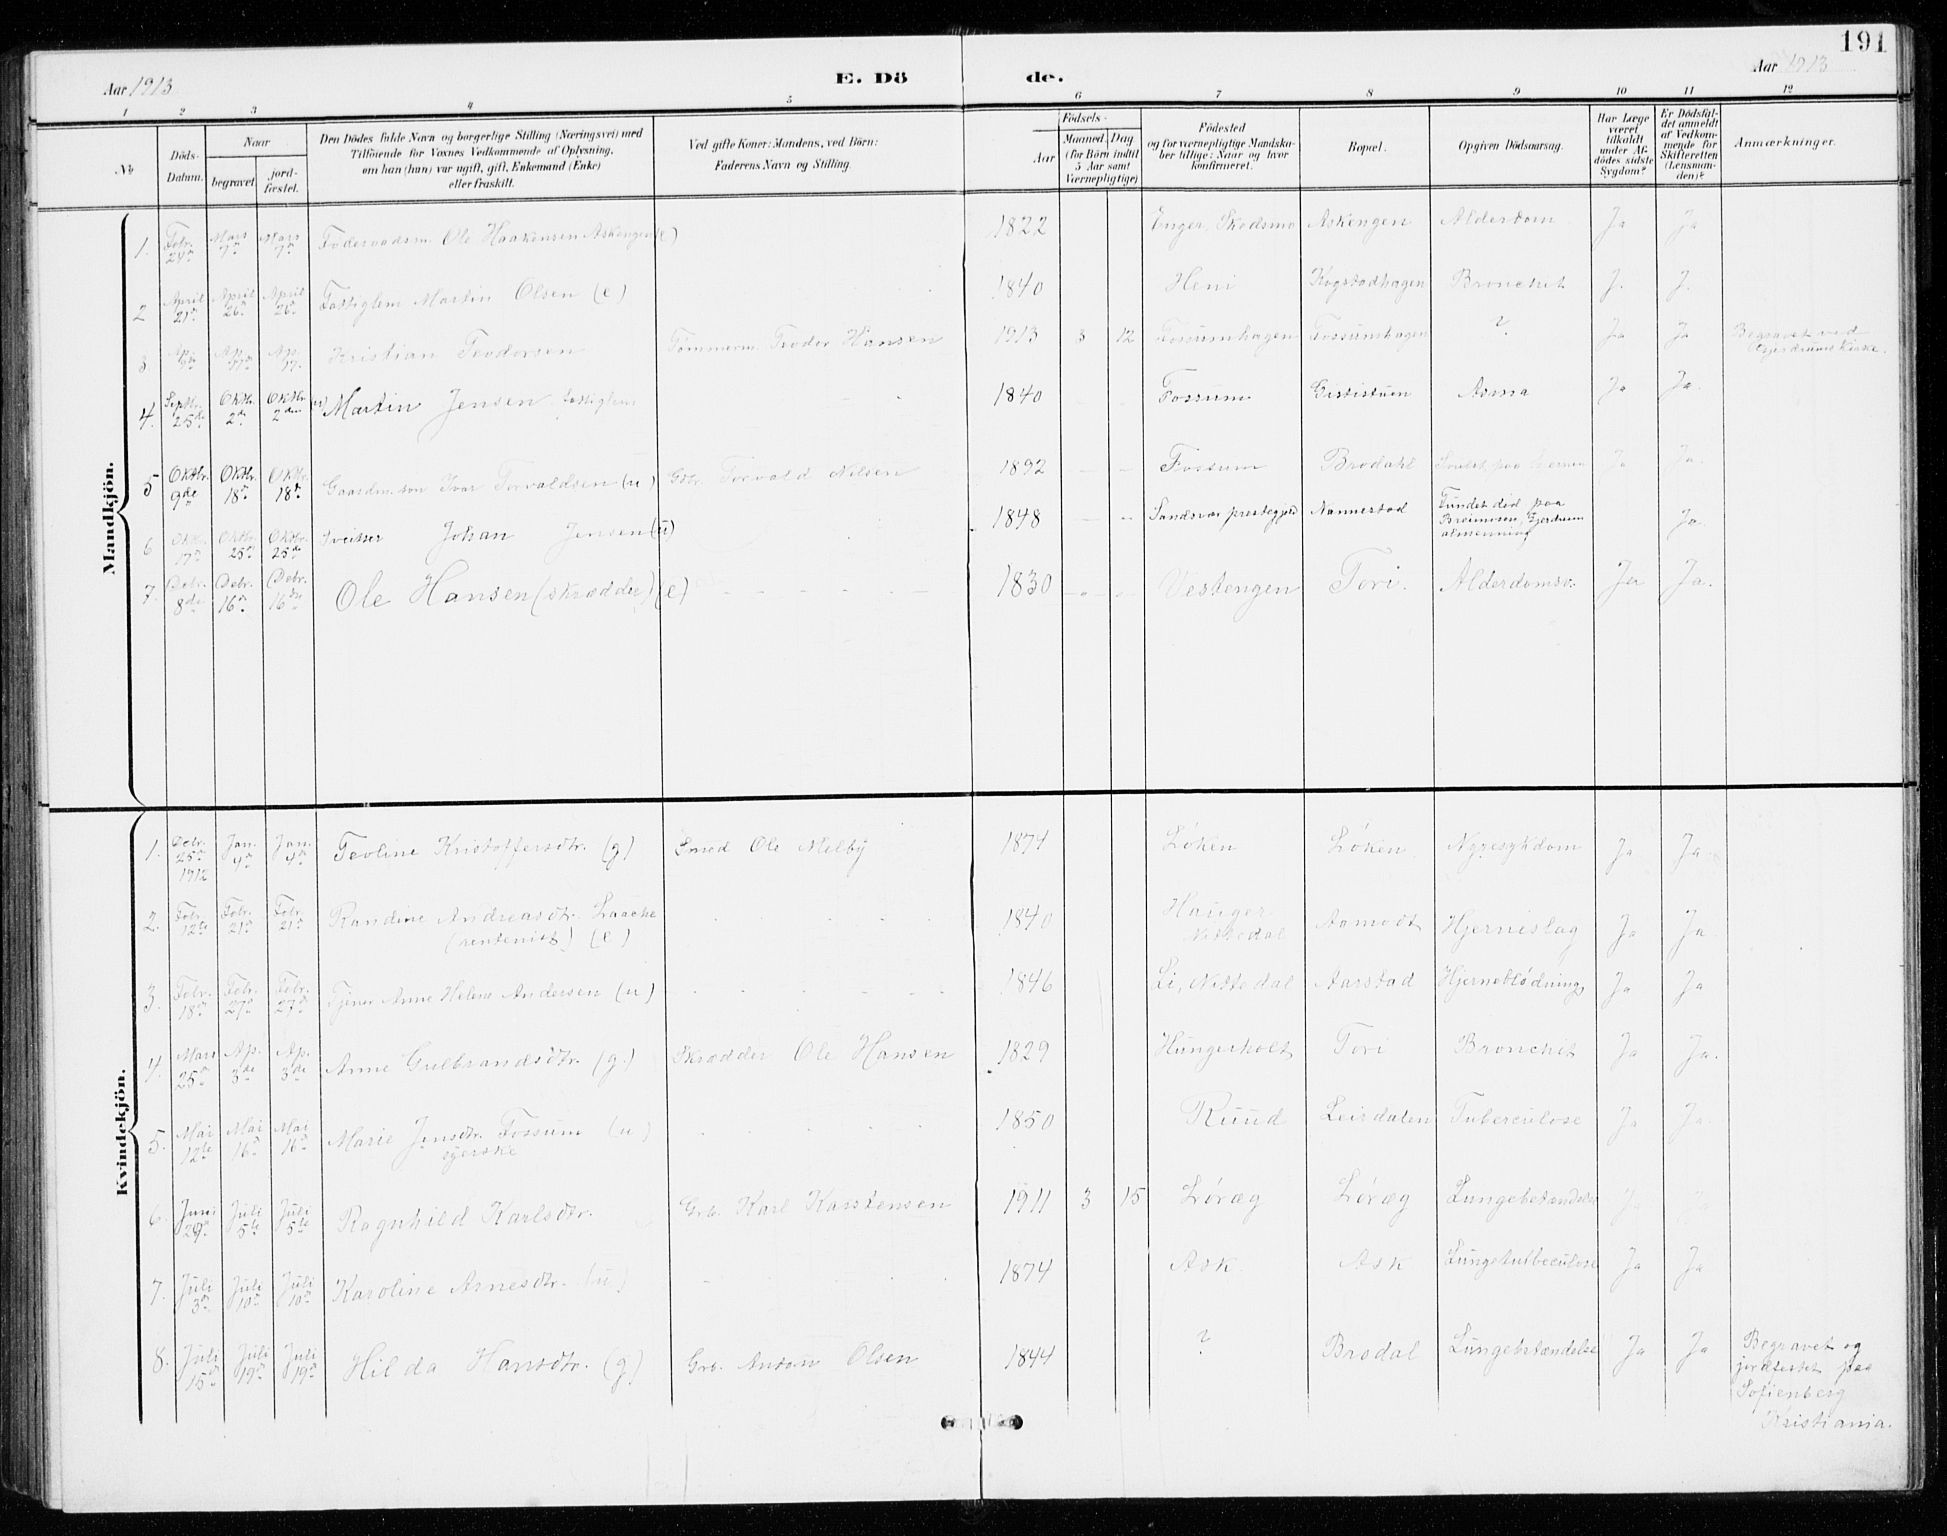 191
Aar 1913
E. Dö de.
Aar 1913
1 2 3 4 5 6 7 8 9 10 11 12
№
Döds-Datum.
Naar
begravet.
jord-fæstet.
Den Dödes fulde Navn og borgerlige Stilling (Næringsvei) med
Tilföiende for Voxnes Vedkommende af Oplysning,
om han (hun) var ugift, gift, Enkemand (Enke)
eller fraskilt.
Ved gifte Koner: Mandens, ved Börn:
Faderens Navn og Stilling.
Födsels-
Aar
Maaned Dag
(for Börn indtil
5 Aar samt
Værnepligtige)
Födested
og for værnepligtige Mandska-
ber tillige: Naar og hvor
konfirmeret.
Bopæl.
Opgiven Dödsaarsag.
Har Læge
været
tilkaldt
under Af-
dödes sidste
Sygdom?
Er Dödsfal-
det anmeldt
af Vedkom-
mende for
Skifteretten
(Lensman-
den)?
Anmærkninger.
Mandkjön.
1. Febr. 24de Mars 7de Mars 7de Föderaadsm. Ole Haakensen Askengen (e) 1822 Enger, Skedsmo Askengen Alderdom Ja Ja
2 April 21de April 26de April 26de Fattiglem Martin Olsen (e) 1840 Heni Kogstadhagen Bronchit J. J.
3 Ap. Ap. 17de Ap. 17. Kristian Teodorsen Tømmerm. Teodor Hansen 1913 3 12 Fossumhagen Fossumhagen ? Ja Ja Begravet ved
Gjerdrums Kirke.
4. Septbr. 25de Oktbr. 2de Oktbr. 2den Martin Jensen fattiglem 1840 Fossum Gististuen Asma Ja Ja.
5 Oktbr. 9de Oktbr. 18de Oktbr. 18de Gaardm.søn Ivar Torvaldsen (u) Gbr. Torvald Nilsen 1892 Fossum Brodahl Ja Ja.
6 Oktbr. 17de Oktbr. 25de Oktbr. 25de Sveitser Johan Jensen (u) 1848 Sandsvær prestegjeld Nannestad Fundet død paa
Gjerdrum
almenning Ja.
7. Debr. 8de Debr. 16de Debr. 16de Ole Hansen (skrædder) (e) 1830 Vestengen Tori. Alderdomss. Ja Ja.
Kvindekjön.
1. Debr. 25de 1912 Jan. 4de Jan. 4de Teoline Kristoffersdtr. (g) Smed Ole Melby 1874 Løken Løken Nyresykdom Ja Ja.
2. Febr. 12te Febr. 21de Febr. 21de Randine Andreasdtr. Laache
(rentenist) (e) 1840 Hauger
Nittedal Aamodt Hjernislag Ja Ja.
3. Febr. 18de Febr. 27de Febr. 27de Tjener Anne Helene Andersen (u) 1846 Li, Nittedal Aarstad Hjerneblødning Ja Ja
4. Mars 25de Ap. 3de Ap. 3de Anne Gulbrandsdtr. (g.) Skrædder Ole Hansen 1829 Hungerholt Tori Bronchit Ja Ja.
5. Mai 12te Mai 16de Mai 16de Marie Jensdtr. Fossum (u)
syerske 1850 Ruud Leirdalen Tuberculose Ja Ja.
6. Juni 29de Juli 5te Juli 5te Ragnhild Karlsdtr. Grb. Karl Karstensen 1911 3 15 Løræg Løræg Lungebetændelse Ja Ja
7. Juli 3de Juli 10de Juli 10de Karoline Arnesdtr. (u) 1874 Ask. Ask Lungetuberculose Ja Ja
8. Juli 15de Juli 19de Juli 19de Hilda Hansdtr. (g) Grb. Anton Olsen 1844 ? Brodal Lungebetændelse Ja Ja Begravet og
jordfestet paa
Sofienberg
Kristiania.